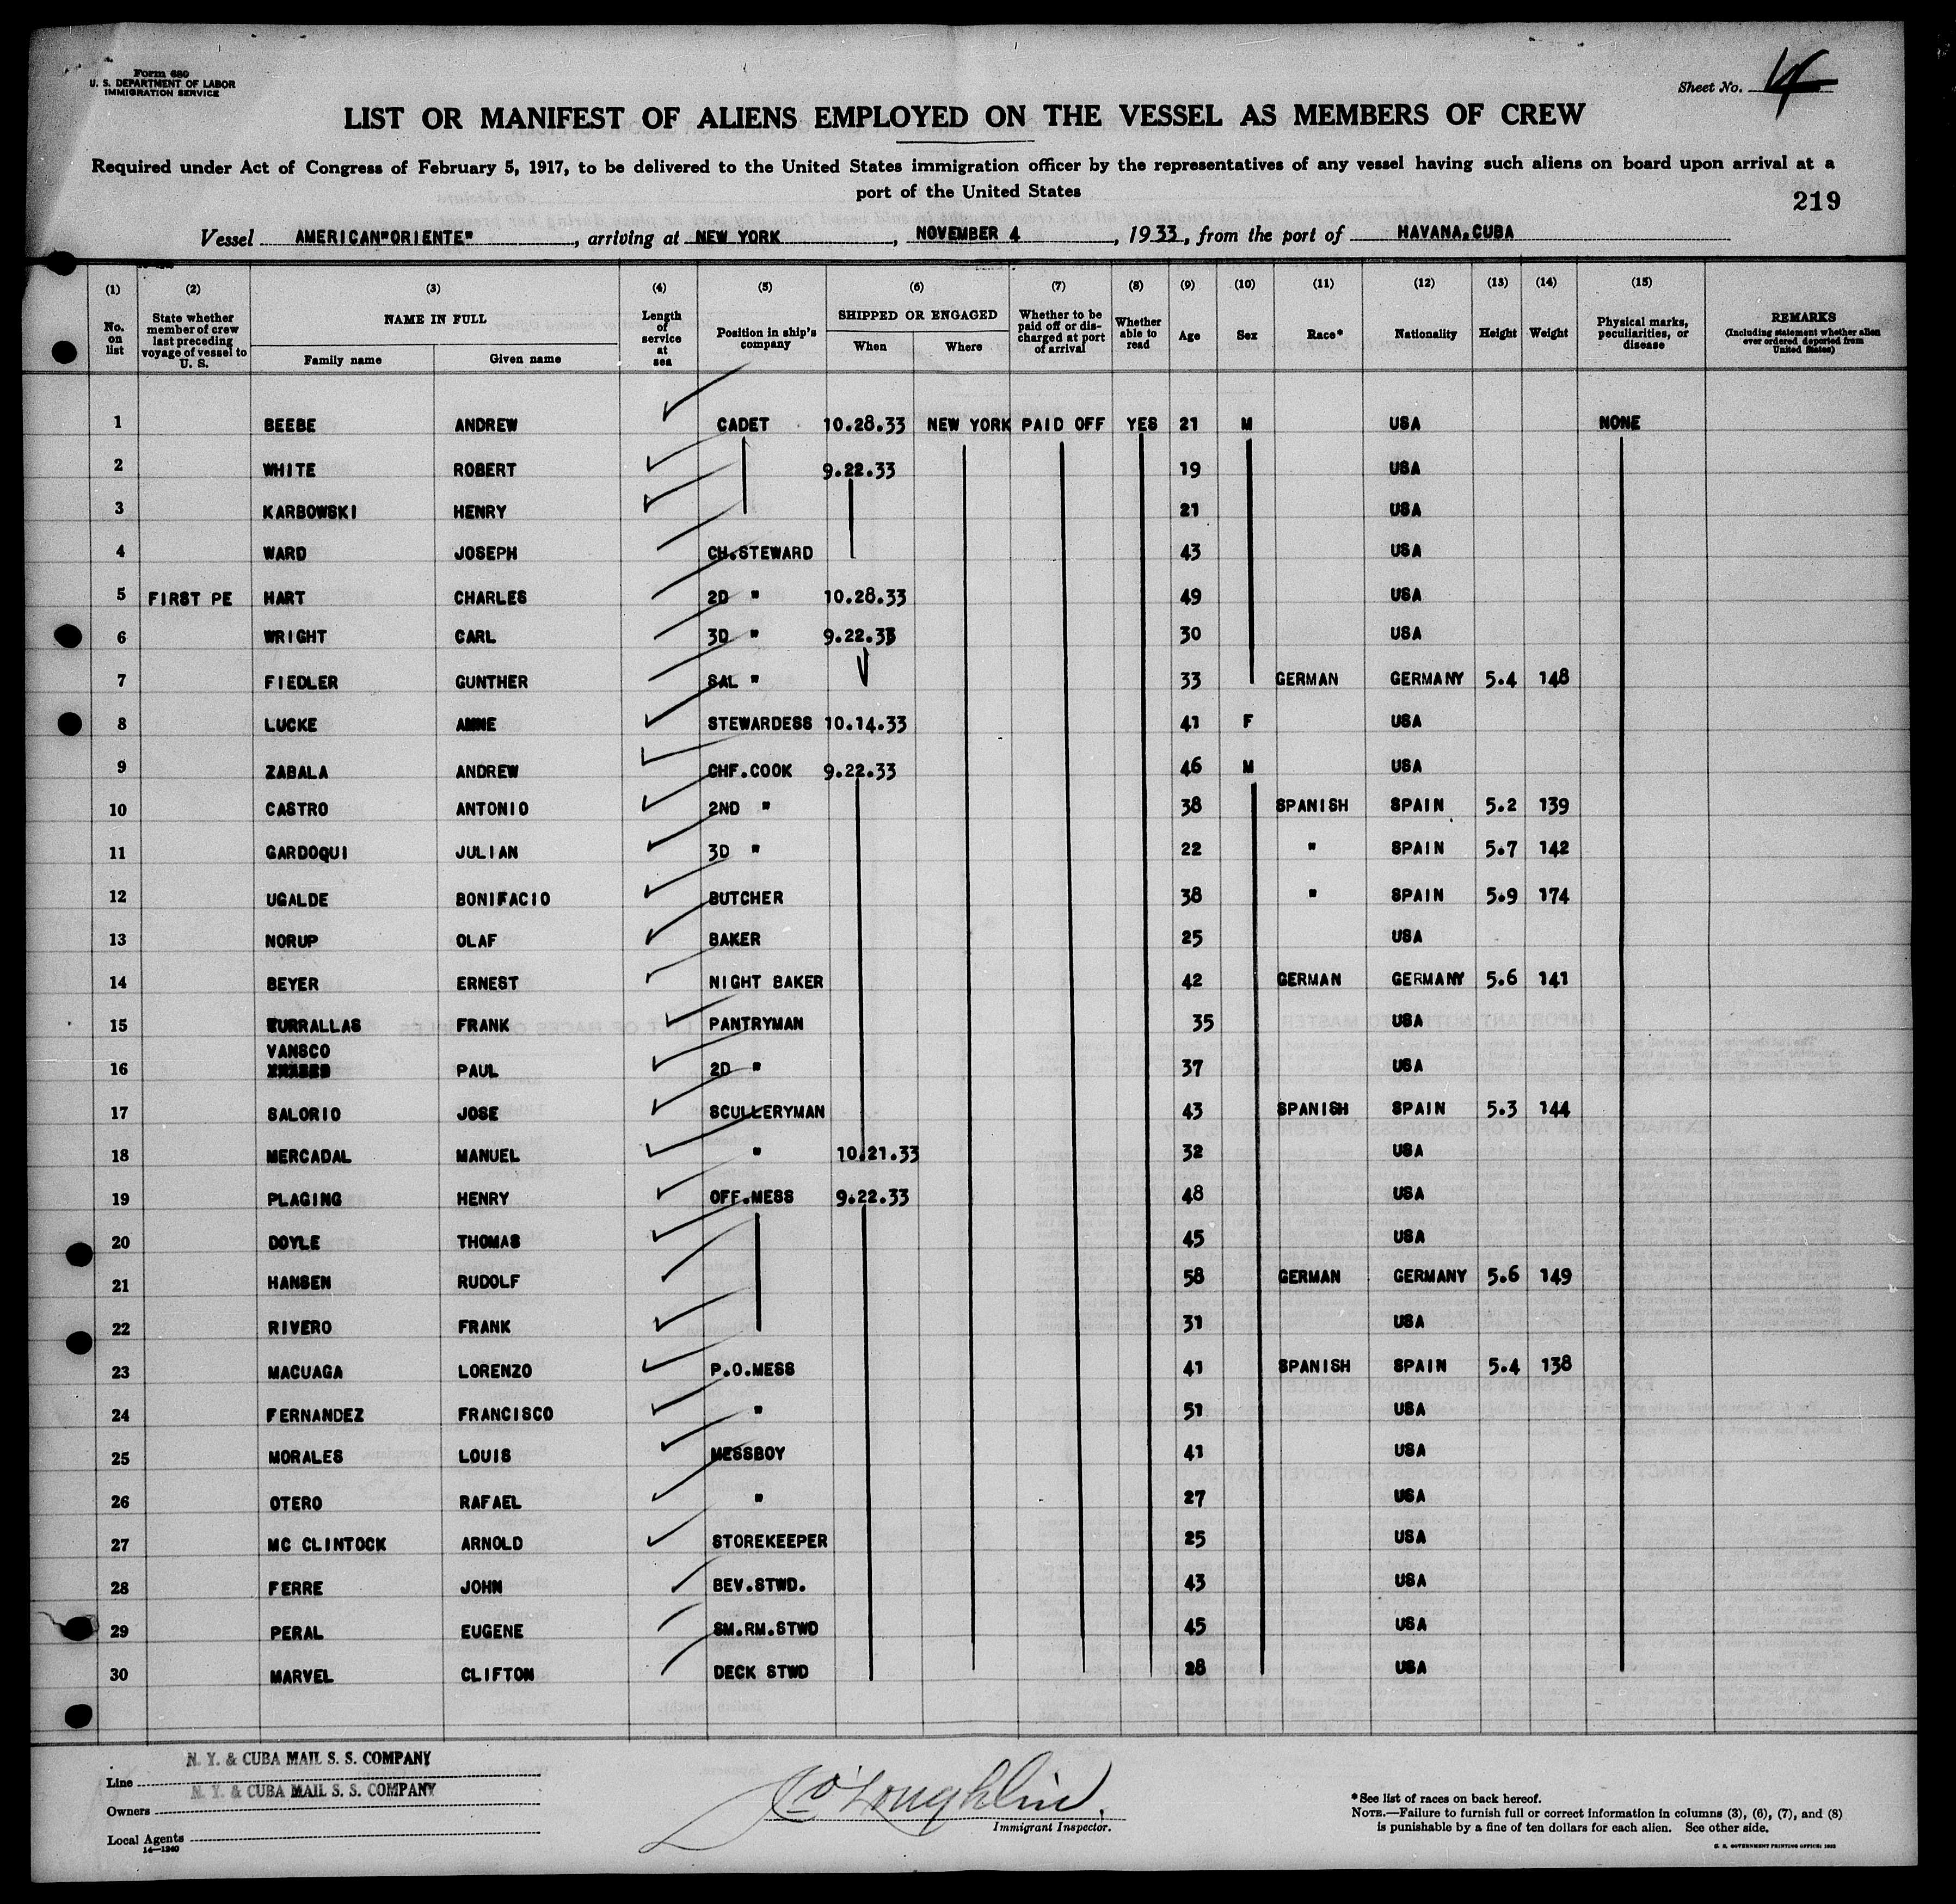 Form 680
U. S. DEPARTMENT OF LABOR
IMMIGRATION SERVICE
Sheet No. 4
LIST OR MANIFEST OF ALIENS EMPLOYED ON THE VESSEL AS MEMBERS OF CREW
Required under Act of Congress of February 5, 1917, to be delivered to the United States immigration officer by the representatives of any vessel having such aliens on board upon arrival at a
port of the United States
219
Vessel AMERICAN"ORIENTE", arriving at NEW YORK, NOVEMBER 4, 1933, from the port of HAVANA,CUBA
(1) (2) (3) (4) (5) (6) (7) (8) (9) (10) (11) (12) (13) (14) (15)
No. on list State whether member of crew last preceding voyage of vessel to U. S. NAME IN FULL Family name Given name Length of service at sea Position in ship's company SHIPPED OR ENGAGED When Where Whether to be paid off or discharged at port of arrival Whether able to read Age Sex Race* Nationality Height Weight Physical marks, peculiarities, or disease REMARKS (Including statement whether alien ever ordered deported from United States)
1 BEEBE ANDREW CADET 10.28.33 NEW YORK PAID OFF YES 21 M USA NONE
2 WHITE ROBERT 9.22.33 19 USA
3 KARBOWSKI HENRY 21 USA
4 WARD JOSEPH CH.STEWARD 43 USA
5 FIRST PE HART CHARLES 2D " 10.28.33 49 USA
6 WRIGHT CARL 3D " 9.22.33 30 USA
7 FIEDLER GUNTHER SAL " 33 GERMAN GERMANY 5.4 148
8 LUCKE ANNE STEWARDESS 10.14.33 41 F USA
9 ZABALA ANDREW CHF.COOK 9.22.33 46 M USA
10 CASTRO ANTONIO 2ND " 38 SPANISH SPAIN 5.2 139
11 GARDOQUI JULIAN 3D " 22 " SPAIN 5.7 142
12 UGALDE BONIFACIO BUTCHER 38 " SPAIN 5.9 174
13 NORUP OLAF BAKER 25 USA
14 BEYER ERNEST NIGHT BAKER 42 GERMAN GERMANY 5.6 141
15 ZURRALLAS FRANK PANTRYMAN 35 USA
16 VANSCO PAUL 2D " 37 USA
17 SALORIO JOSE SCULLERYMAN 43 SPANISH SPAIN 5.3 144
18 MERCADAL MANUEL " 10.21.33 32 USA
19 PLAGING HENRY OFF.MESS 9.22.33 48 USA
20 DOYLE THOMAS 45 USA
21 HANSEN RUDOLF 58 GERMAN GERMANY 5.6 149
22 RIVERO FRANK 31 USA
23 MACUAGA LORENZO P.O.MESS 41 SPANISH SPAIN 5.4 138
24 FERNANDEZ FRANCISCO " 51 USA
25 MORALES LOUIS MESSBOY 41 USA
26 OTERO RAFAEL " 27 USA
27 MC CLINTOCK ARNOLD STOREKEEPER 25 USA
28 FERRE JOHN BEV.STWD. 43 USA
29 PERAL EUGENE SM.RM.STWD 45 USA
30 MARVEL CLIFTON DECK STWD 28 USA
Line N. Y. & CUBA MAIL S. S. COMPANY
Owners N. Y. & CUBA MAIL S. S. COMPANY
Local Agents
14—1240
O'Loughlin
Immigrant Inspector.
*See list of races on back hereof.
NOTE.—Failure to furnish full or correct information in columns (3), (6), (7), and (8)
is punishable by a fine of ten dollars for each alien. See other side.
U. S. GOVERNMENT PRINTING OFFICE: 1932